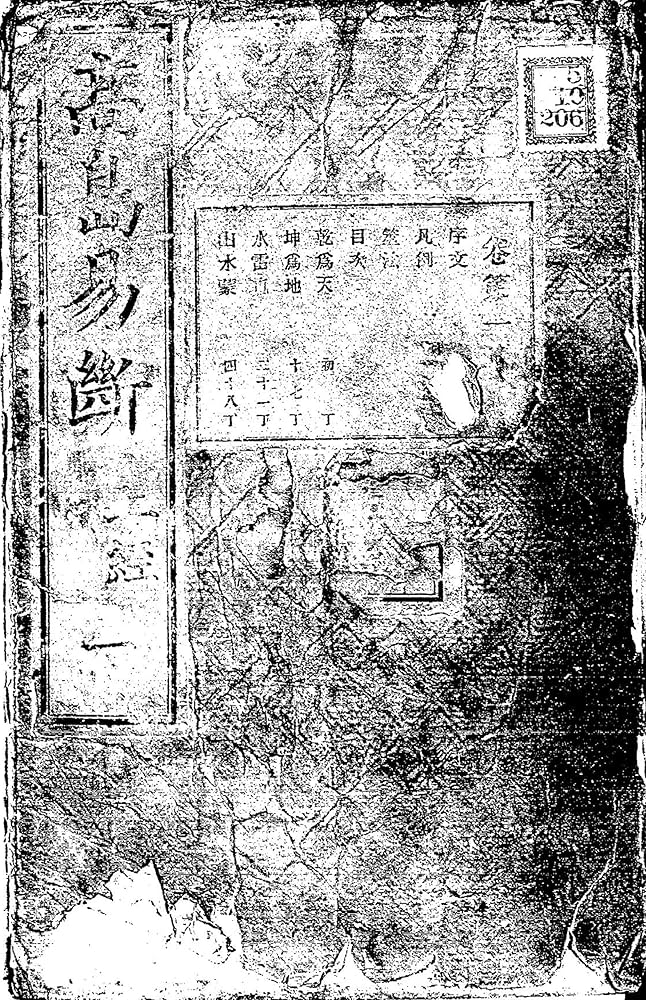 高島易斷 上經 一
卷第一
序文
凡例
筮法
目次
乾爲天 初丁
坤爲地 十七丁
水雷屯 三十一丁
山水蒙 四十八丁
206